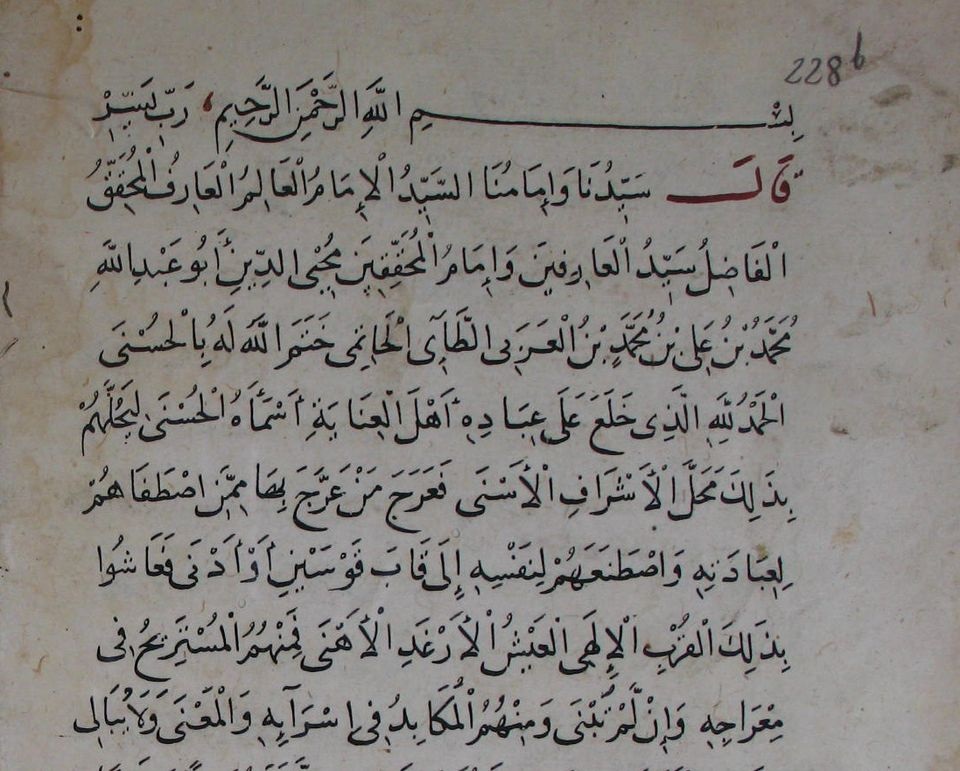 228b
بِسْمِ اللَّهِ الرَّحْمَنِ الرَّحِيمِ، رَبِّ يَسِّرْ
قَالَ سَيِّدُنَا وَإِمَامُنَا السَّيِّدُ الْإِمَامُ الْعَالِمُ الْعَارِفُ الْمُحَقِّقُ
الْفَاضِلُ سَيِّدُ الْعَارِفِينَ وَإِمَامُ الْمُحَقِّقِينَ مُحْيِي الدِّينِ أَبُو عَبْدِ اللَّهِ
مُحَمَّدُ بْنُ عَلِي بْنُ مُحَمَّدٍ بْنُ الْعَرَبِي الطَّآئِي الْحَاتِمِي خَتَمَ اللَّهُ لَهُ بِالْحُسْنَى
الْحَمْدُ لِلَّهِ الَّذِي خَلَعَ عَلَى عِبَادِهِ أَهْلَ الْعِنَايَةِ أَسْمَآءَهُ الْحُسْنَى لِيُحِلَّهُمْ
بِذَلِكَ مَحَلَّ الْأَشْرَافِ الْأَسْنَى فَعَرَجَ مَنْ عَرَّجَ بِهَا مِمَّنِ اصْطَفَاهُمْ
لِعِبَادَتِهِ وَاصْطَنَعَهُمْ لِنَفْسِهِ إِلَى قَابَ قَوْسَيْنِ أَوْ أَدْنَى فَعَاشُوا
بِذَلِكَ الْقُرْبِ الْإِلَهِي الْعَيْشُ الْأَرْغَدِ الْأَهْنَى فَمِنْهُمُ الْمُسْتَرِيحُ فِي
مِعْرَاجِهِ وَإِنْ لَّمْ يُبْنَى وَمِنْهُمُ الْمُكَابِدُ فِي إِسْرَآيِهِ وَالْمَعْنَى وَلَا يُبَالِي